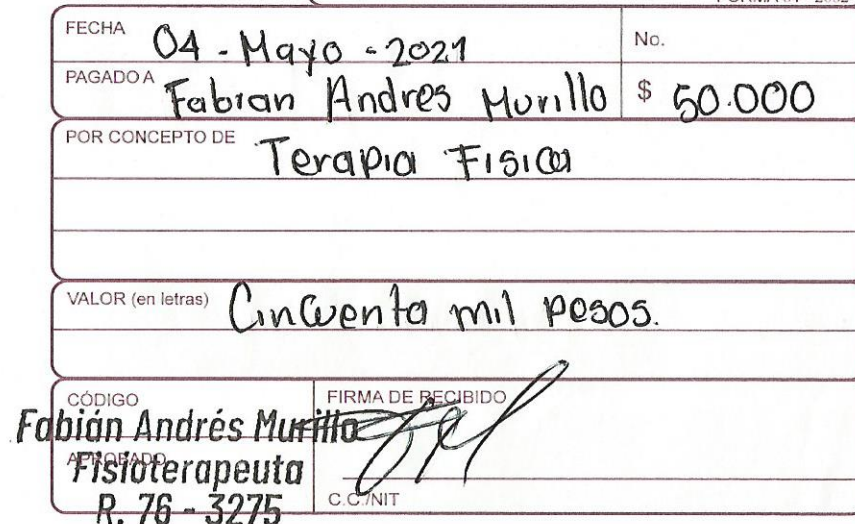 FECHA 04 - Mayo - 2021 No.
PAGADO A Fabian Andres Murillo $ 50.000
POR CONCEPTO DE Terapia Fisica
VALOR (en letras) Cincuenta mil pesos.
CÓDIGO FIRMA DE RECIBIDO
Fabián Andrés Murillo
APROBADO
Fisioterapeuta
R. 76 - 3275
C.C./NIT